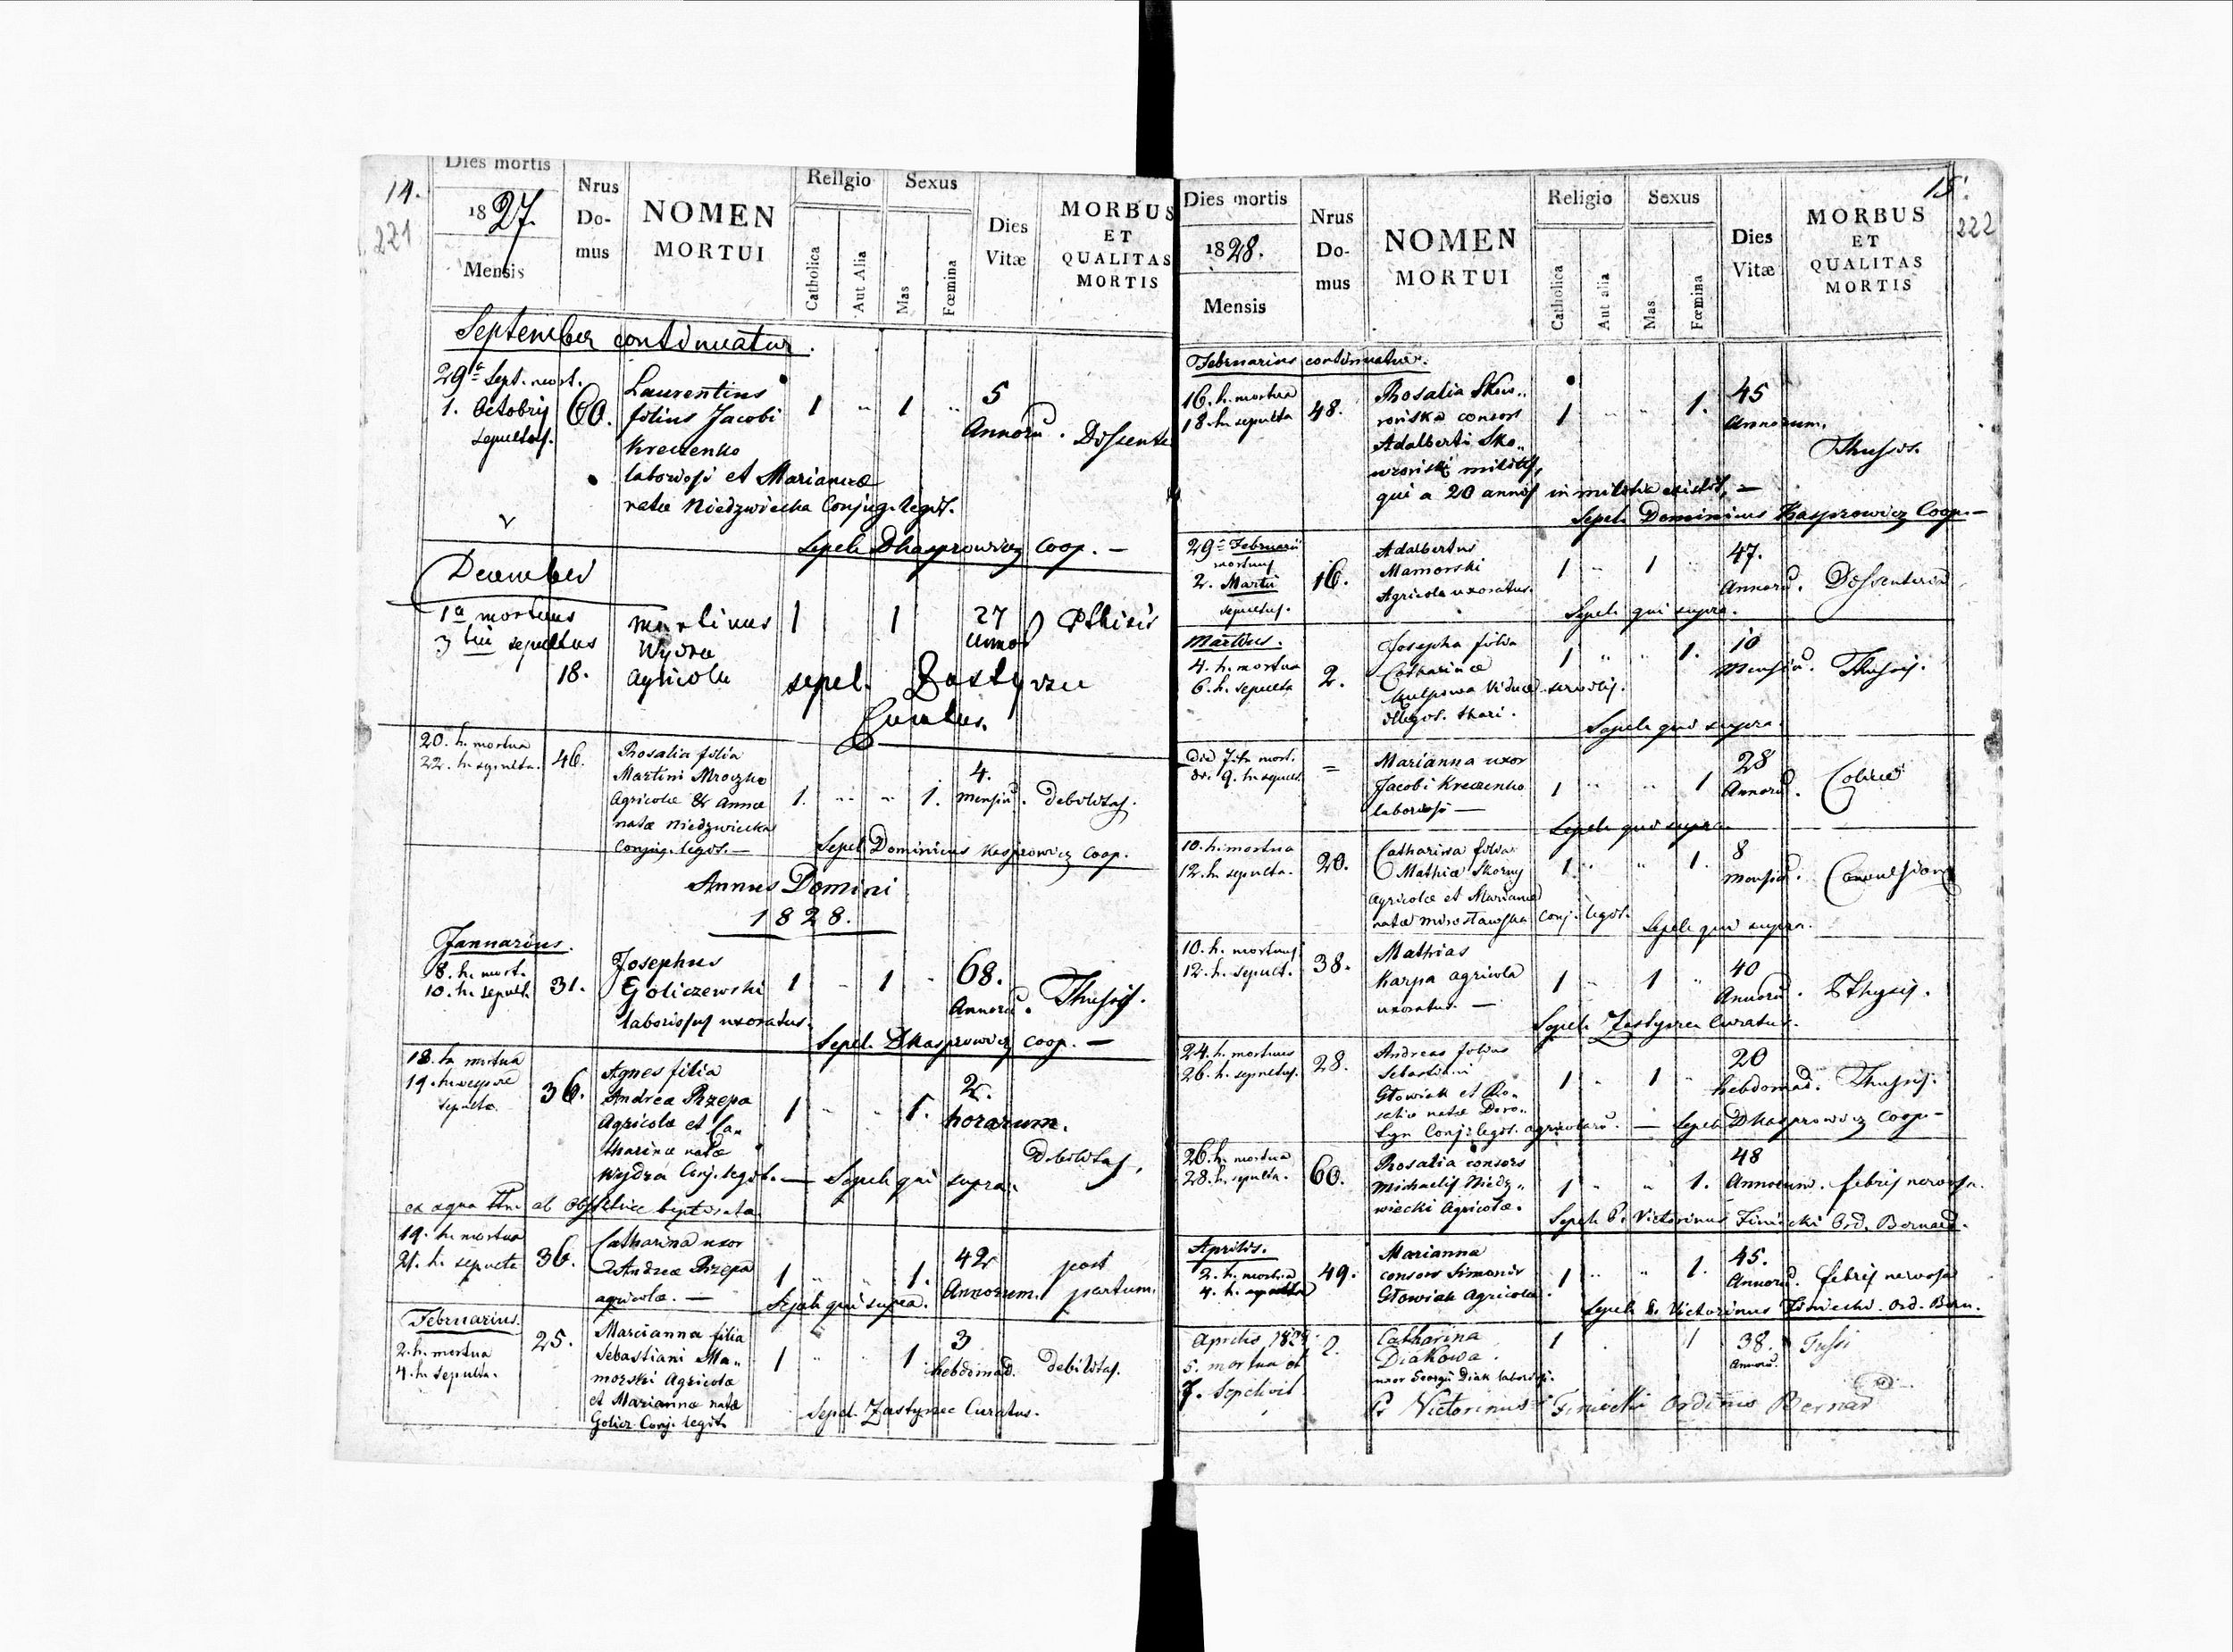 14.
221
Dies mortis
1827.
Mensis
Nrus
Do-
mus
NOMEN
MORTUI
Religio
Catholica
Aut Alia
Sexus
Mas
Fœmina
Dies
Vitæ
MORBUS
ET
QUALITAS
MORTIS
September continuatur.
29a Sept. mort.
1. Octobris
sepultus.
60.
Laurentius
filius Jacobi
Kreczenko
laboriosi et Mariannæ
natæ Niedzwiecka Conjug. legit.
1 " 1 "
5
Annorũ.
Dissente
Sepel. DKasprowicz Coop. —
December
1a mortuus
3tia sepultus
18.
Martinus
Wydra
agricola
1 1
27
annor
Pthisis
sepel. Zastyrzec
Curatus.
20. h. mortua
22. h. sepulta.
46.
Rosalia filia
Martini Mroczko
Agricolæ & Annæ
natæ Niedzwiecka
Conjug. legit. —
1. " " 1.
4.
Mensiũ.
debilitas.
Sepel. Dominicus Kasprowicz Coop.
Annus Domini
1828.
Januarius.
8. h. mort.
10. h. sepult.
31.
Josephus
Goliczewski
laboriosus uxoratus.
1 " 1 "
68.
Annorũ.
Thusis.
Sepel. DKasprowicz Coop. —
18. h. mortua
19. h.
sepulta.
36.
Agnes filia
Andreæ Rzepa
Agricolæ et Ca„
tharinæ natæ
Wydra Conj. legit. — Sepel. qui supra.
1 " " 1.
2.
horarum.
Debilitas.
ex aqua ab obstetrice baptisata.
19. h. mortua
21. h. sepulta
36.
Catharina uxor
Andreæ Rzepa
agricolæ. —
1 " " 1.
42
Annorum.
post
partum.
Sepel. qui supra.
Februarius.
2. h. mortua
4. h. sepulta.
25.
Marianna filia
Sebastiani Ma„
morski Agricolæ
et Mariannæ natæ
Golicz. Conj. legit.
1 " " 1
3
hebdomad.
debilitas.
Sepel. Zastyrzec Curatus.
15.
222
Dies mortis
1828.
Mensis
Nrus
Do-
mus
NOMEN
MORTUI
Religio
Catholica
Aut alia
Sexus
Mas
Fœmina
Dies
Vitæ
MORBUS
ET
QUALITAS
MORTIS
Februarius continuatur.
16. h. mortua
18. h. sepulta
48.
Rosalia Skow„
rońska consors
Adalberti Sko„
wroński militis,
qui a 20 annis in militia existit, —
1 " " 1.
45
Annorum.
Thusis.
Sepel. Dominicus Kasprowicz Coop. —
29a Februarii
mortuus
2. Martii
sepultus.
16.
Adalbertus
Mamorski
Agricola uxoratus.
1 " 1 "
47.
Annorũ.
Dissenteria.
Sepel. qui supra.
Martius.
4. h. mortua
6. h. sepulta
2.
Josepha filia
Catharinæ
Kulpowa Viduæ servilis.
illegit. thori.
1 " " 1.
10
Mensiũ.
Thusis.
Sepel. qui supra.
die 7. h. mort.
di. 9. h. sepult.
=
Marianna uxor
Jacobi Kreczenko
laboriosi —
1 " " 1
28
Annorũ.
Colica
Sepel. qui supra.
10. h. mortua
12. h. sepulta.
20.
Catharina filia
Mathiæ Skorny
Agricolæ et Mariannæ
natæ Mirosławska Conj. legit.
1 " " 1.
8
Mensiũ.
Convulsiones
Sepel. qui supra.
10. h. mortuus
12. h. sepult.
38.
Mathias
Karpa agricola
uxoratus. —
1 " 1 "
40
Annorũ.
Sthysis.
Sepel. Zastyrzec Curatus.
24. h. mortuus
26. h. sepultus.
28.
Andreas filius
Sebastiani
Głowiak et Ro„
saliæ natæ Doro„
tyn Conj. legit. agricolarũ. — Sepel. DKasprowicz Coop. —
1 " 1 "
20
hebdomad.
Thusis.
26. h. mortua
28. h. sepulta.
60.
Rosalia consors
Michaelis Niedz„
wiecki Agricolæ.
1 " " 1.
48
Annorum.
febris nervosa.
Sepel. P. Victorinus Finicki Ord. Bernard.
Aprilis.
2. h. mortua
4. h. sepulta
49.
Marianna
consors Simonis
Głowiak Agricolæ.
1 " " 1.
45.
Annorũ.
febris nervosa
Sepel. P. Victorinus Finicki. Ord. Bern.
Aprilis 1828.
5. mortua et
7. Sepelivit
2.
Catharina
Diakowa.
uxor Georgii Diak laboriosi.
1 1
38.
Annorũ.
Tussi
P. Victorinus Finicki Ordinis Bernard